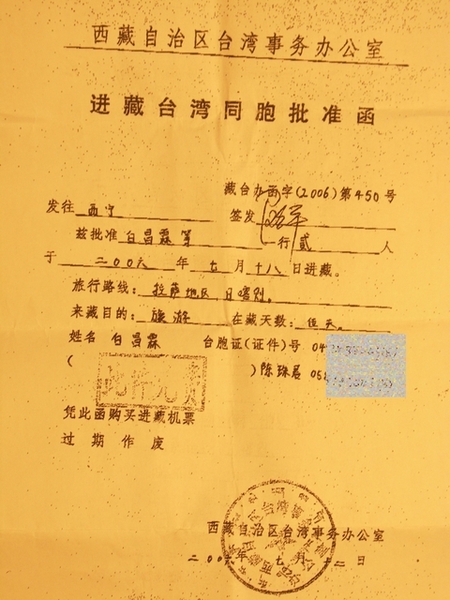 西藏自治区台湾事务办公室
进藏台湾同胞批准函
藏台办函字(2006)第450号
发往 西宁 签发
兹批准 白昌霖 等 一行 贰 人
于 二〇〇六 年 七 月 十八 日进藏。
旅行路线： 拉萨地区 日喀则。
来藏目的： 旅游 在藏天数： 伍天。
姓名 白昌霖 台胞证(证件)号 04
( ) 陈珠展 05
凭此函购买进藏机票
过期作废
西藏自治区台湾事务办公室
二〇〇六年七月十二日